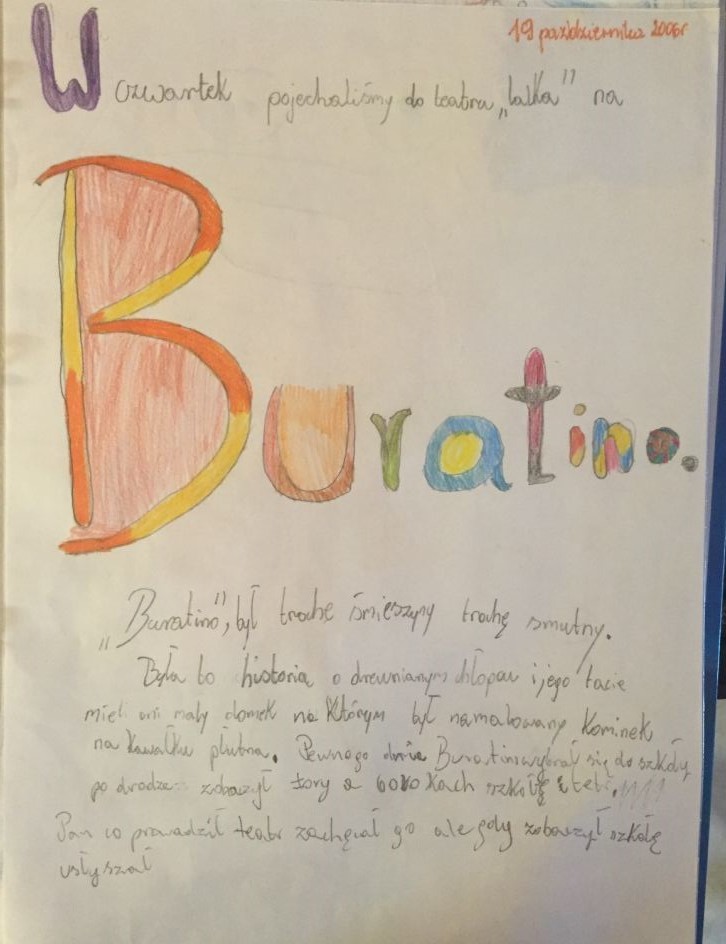 19 października 2006r
W czwartek pojechaliśmy do teatru „lalka" na
Buratino.
„Buratino", był trochę śmieszny trochę smutny.
Była to historia o drewnianym chłopcu i jego tacie
mieli oni mały domek na którym był namalowany kominek
na kawałku płutna. Pewnego dnia Buratino wybrał się do szkoły
po drodze zobaczył tory a bokach szkołę i
Pan co prowadził teatr zachęcał go ale gdy zobaczył szkołę
usłyszał